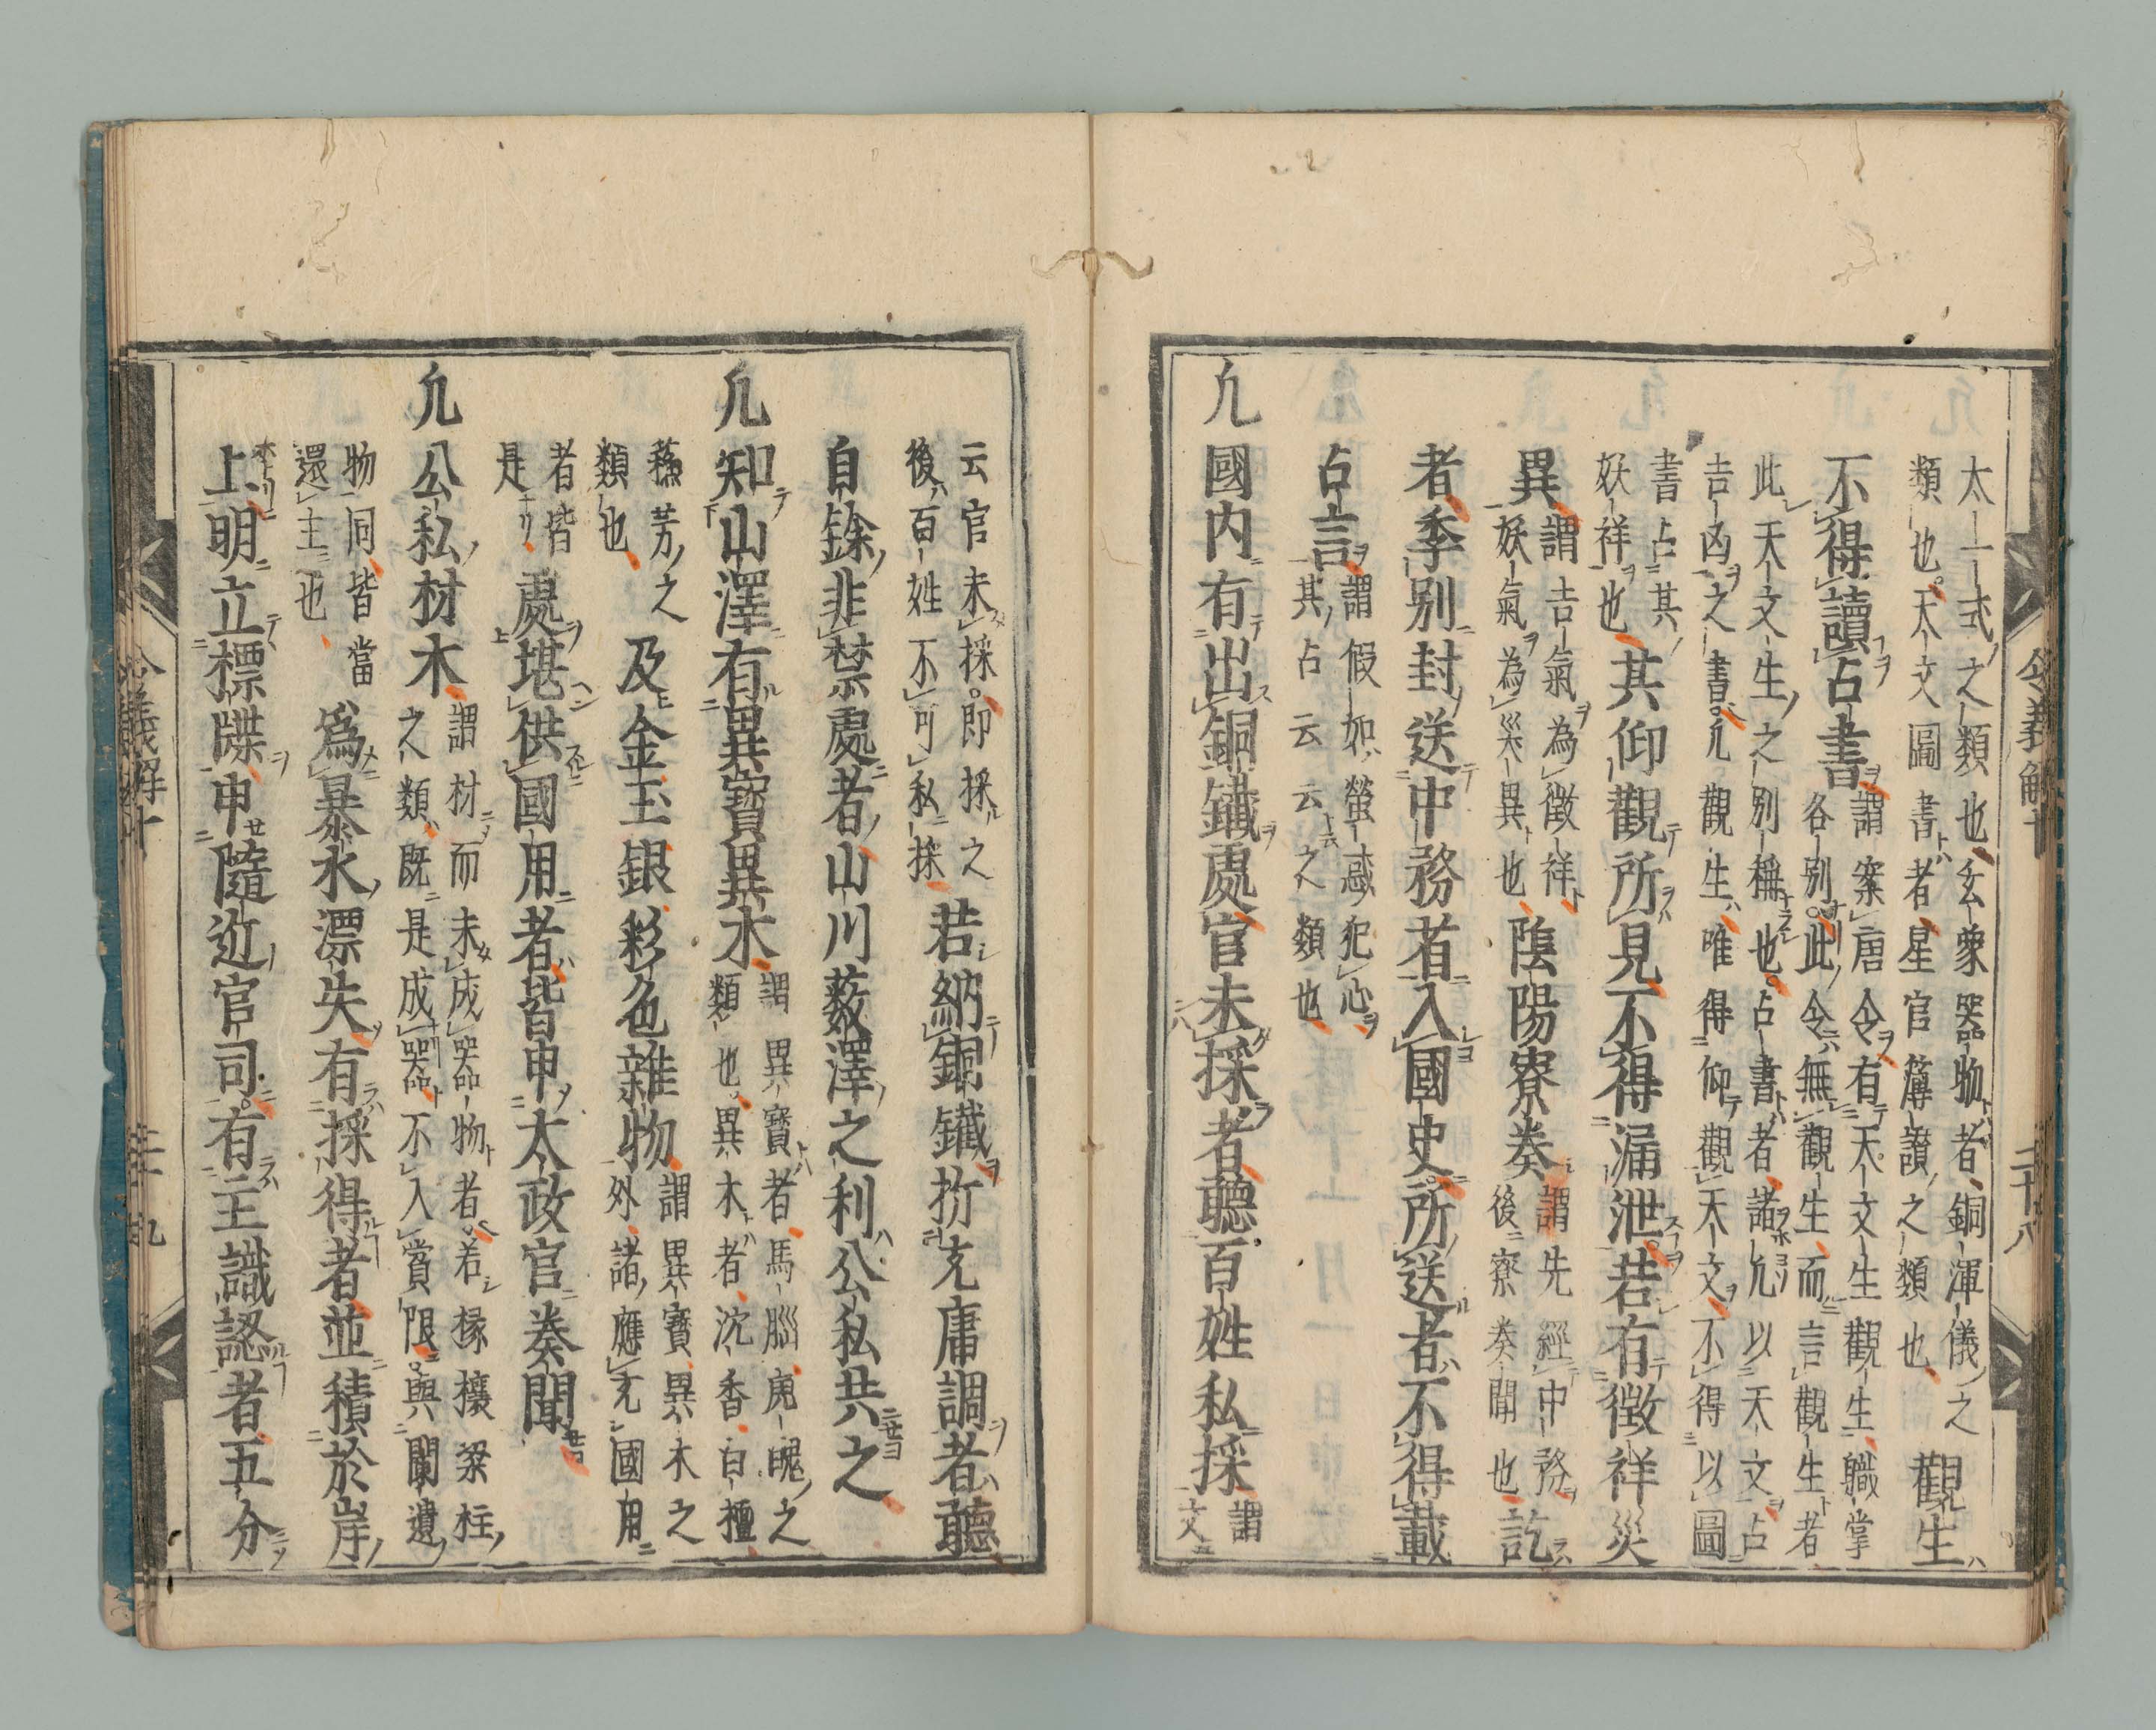 太一式之類也玄象器物者銅渾儀之
類也天文圖書者星官簿讚之類也
觀生
不得讀占書
謂案唐令有天文生觀生職掌
各別此令無觀生而言觀生者
此天文生之別稱也占書者諸凢以天文占
吉凶之書凢觀生唯得仰觀天文不得以圖
書占其
妖祥也
其仰觀所見不得漏泄若有徵祥災
異
謂吉氣為徵祥
妖氣為災異也
陰陽寮奏
謂先經中務
後寮奏聞也
訖
者季別封送中務省入國史所送者不得載
占言
謂假如熒惑犯心
其占云云之類也
凢國内有出銅鐵處官未採者聽百姓私採
謂
文
令義解十
二十八
云官未採即採之
後百姓不可私採
若納銅鐵折充庸調者聽
自餘非禁處者山川藪澤之利公私共之
凢知山澤有異寶異木
謂異寶者馬腦虎魄之
類也異木者沈香白檀
蘇芳之
類也
及金玉銀彩色雜物
謂異寶異木之
外諸應充國用
者皆
是
處堪供國用者皆申太政官奏聞
凢公私材木
謂材而未成器物者若椽攘梁柱
之類既是成器不入賞限與闌遺
物同皆當
還主也
爲暴水漂失有採得者並積於岸
上明立標牒申隨近官司有主識認者五分
令義解十
二十九